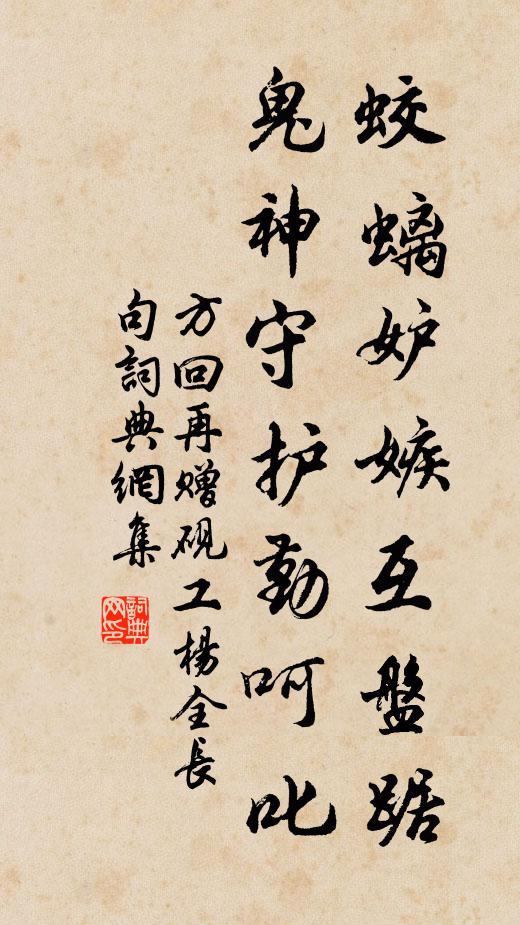 蛟螭妒嫉互盤踞
鬼神守护勤呵叱
方回再赠砚工楊全長
句詞典網集
詞典网印